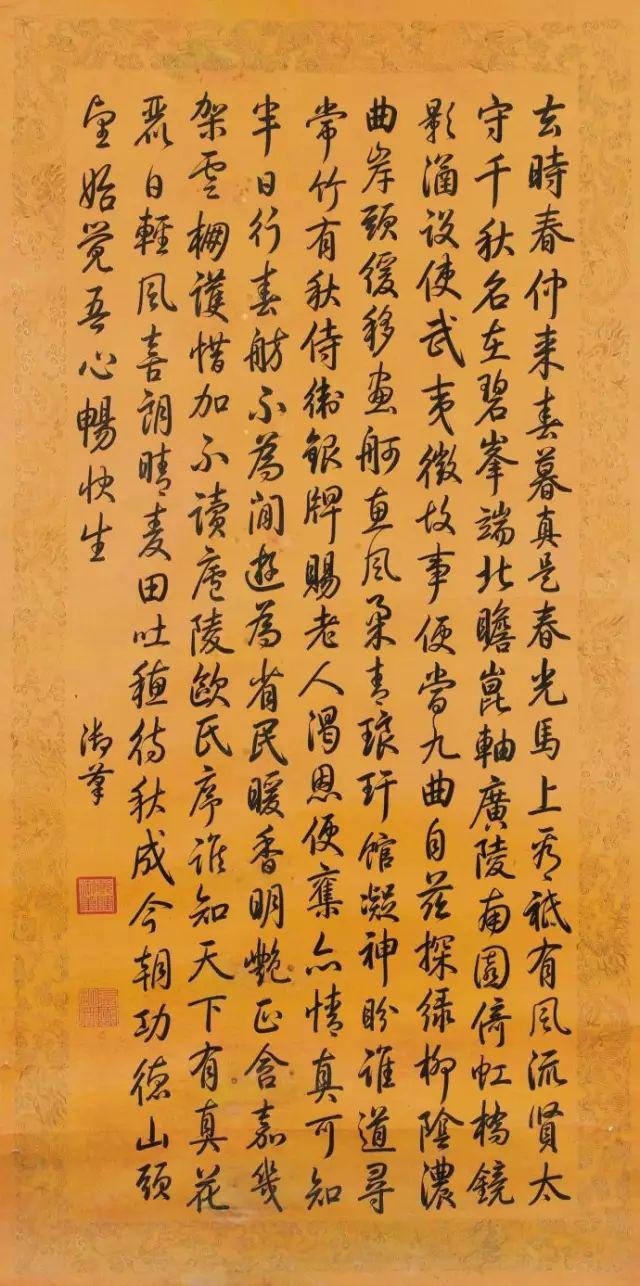 去時春仲來春暮真是春光馬上看祇有風流賢太
守千秋名在碧峯端北瞻崑軸廣陵南園倚虹橋鏡
影涵设使武夷徵故事便當九曲自茲探緑柳陰濃
曲岸頭緩移畫舸直風柔青琅玕館凝神盼誰道尋
常竹有秋侍衛銀牌賜老人渴恩便奮亦情真可知
半日行春舫不為閒遊為省民暖香明艷正含嘉幾
架雲棚護惜加不讀廬陵歐氏序誰知天下有真花
麗日輕風喜朗晴麦田吐穂待秋成今朝功德山頭
望始觉吾心暢快生
御筆